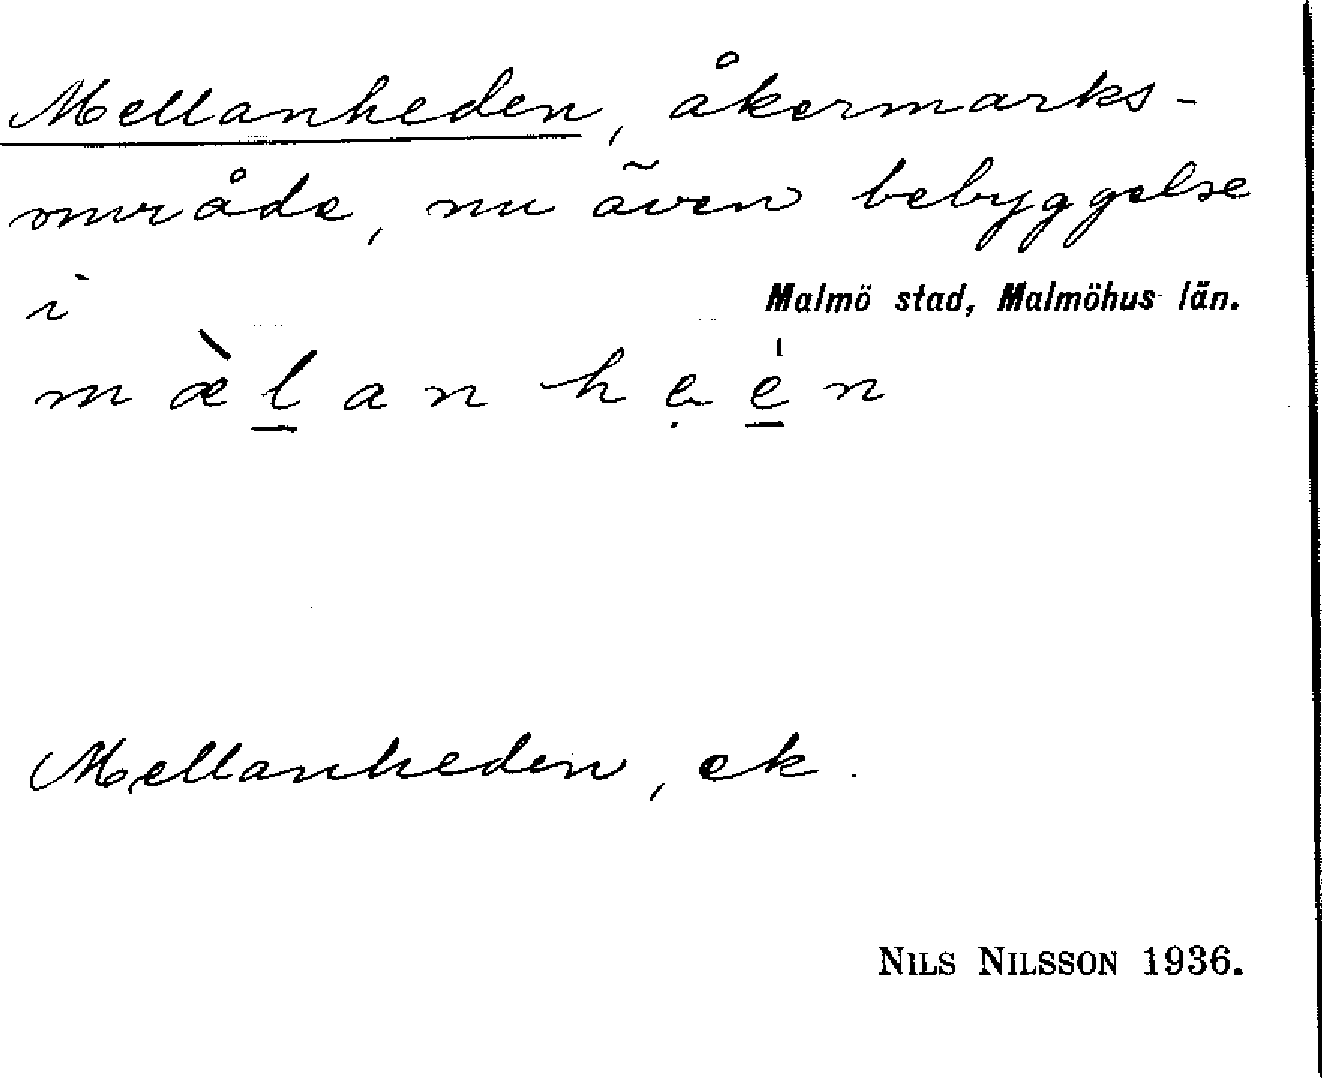 Mellanheden, åkermarks-
område, nu även bebyggelse
i Malmö stad, Malmöhus län.
m æ̀ l̲ a n h ẹ e̲̍ n
Mellanheden, ek.
NILS NILSSON 1936.